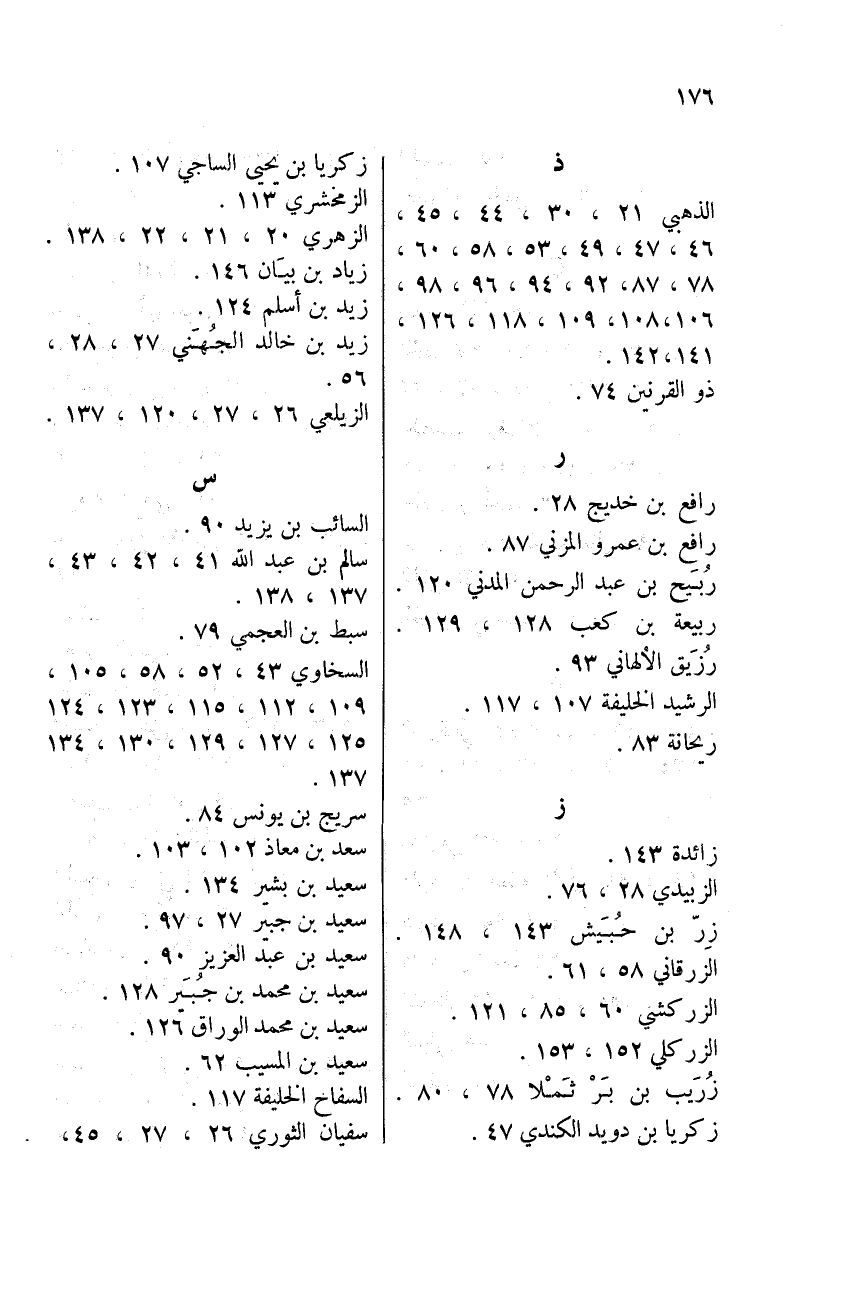 ١٧٦
ذ
الذهبي ٢١ ، ٣٠ ، ٤٤ ، ٤٥ ،
٤٦ ، ٤٧ ، ٤٩ ، ٥٣ ، ٥٨ ، ٦٠ ،
٧٨ ، ٨٧، ٩٢ ، ٩٤ ، ٩٦ ، ٩٨ ،
١٠٦،١٠٨، ١٠٩ ، ١١٨ ، ١٢٦ ،
١٤١،١٤٢ .
ذو القرنين ٧٤ .
ر
رافع بن خديج ٢٨ .
رافع بن عمرو المزني ٨٧ .
رُبَيح بن عبد الرحمن المدني ١٢٠ .
ربيعة بن كعب ١٢٨ ، ١٢٩ .
رُزَيق الألهاني ٩٣ .
الرشيد الخليفة ١٠٧ ، ١١٧ .
ريحانة ٨٣ .
ز
زائدة ١٤٣ .
الزبيدي ٢٨ ، ٧٦ .
زِرّ بن حُبَيش ١٤٣ ، ١٤٨ .
الزرقاني ٥٨ ، ٦١ .
الزركشي ٦٠ ، ٨٥ ، ١٢١ .
الزركلي ١٥٢ ، ١٥٣ .
زُرَيب بن بَرْ ثَمْلا ٧٨ ، ٨٠ .
زكريا بن دويد الكندي ٤٧ .
زكريا بن يحيى الساجي ١٠٧ .
الزمخشري ١١٣ .
الزهري ٢٠ ، ٢١ ، ٢٢ ، ١٣٨ .
زياد بن بيَان ١٤٦ .
زيد بن أسلم ١٢٤ .
زيد بن خالد الجُهَني ٢٧ ، ٢٨ ،
٥٦ .
الزيلعي ٢٦ ، ٢٧ ، ١٢٠ ، ١٣٧ .
س
السائب بن يزيد ٩٠ .
سالم بن عبد الله ٤١ ، ٤٢ ، ٤٣ ،
١٣٧ ، ١٣٨ .
سبط بن العجمي ٧٩ .
السخاوي ٤٣ ، ٥٢ ، ٥٨ ، ١٠٥ ،
١٠٩ ، ١١٢ ، ١١٥ ، ١٢٣ ، ١٢٤
١٢٥ ، ١٢٧ ، ١٢٩ ، ١٣٠ ، ١٣٤
١٣٧ .
سريج بن يونس ٨٤ .
سعد بن معاذ ١٠٢ ، ١٠٣ .
سعيد بن بشير ١٣٤ .
سعيد بن جبير ٢٧ ، ٩٧ .
سعيد بن عبد العزيز ٩٠ .
سعيد بن محمد بن جُبَير ١٢٨ .
سعيد بن محمد الوراق ١٢٦ .
سعيد بن المسيب ٦٢ .
السفاح الخليفة ١١٧ .
سفيان الثوري ٢٦ ، ٢٧ ، ٤٥،